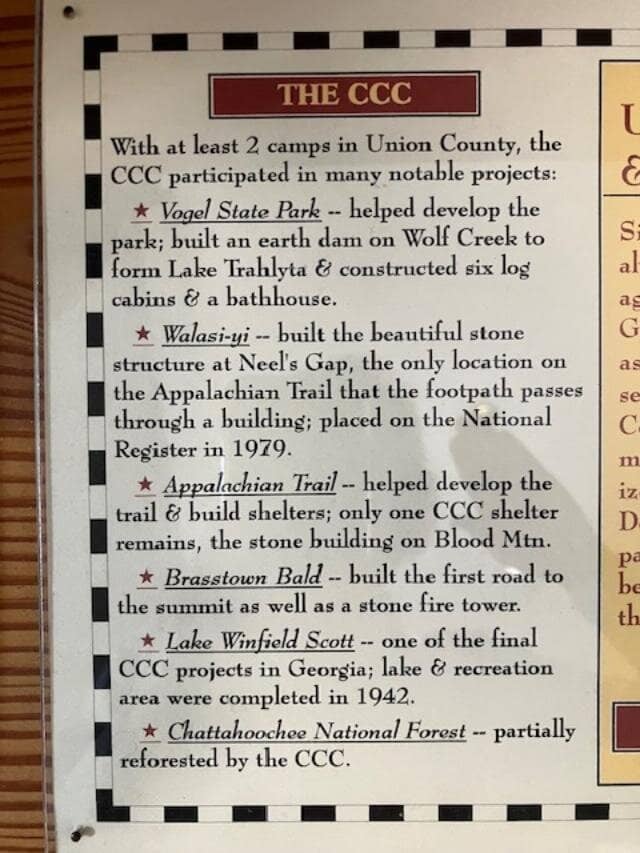 THE CCC
With at least 2 camps in Union County, the
CCC participated in many notable projects:
★ Vogel State Park -- helped develop the
park; built an earth dam on Wolf Creek to
form Lake Trahlyta & constructed six log
cabins & a bathhouse.
★ Walasi-yi -- built the beautiful stone
structure at Neel's Gap, the only location on
the Appalachian Trail that the footpath passes
through a building; placed on the National
Register in 1979.
★ Appalachian Trail -- helped develop the
trail & build shelters; only one CCC shelter
remains, the stone building on Blood Mtn.
★ Brasstown Bald -- built the first road to
the summit as well as a stone fire tower.
★ Lake Winfield Scott -- one of the final
CCC projects in Georgia; lake & recreation
area were completed in 1942.
★ Chattahoochee National Forest -- partially
reforested by the CCC.